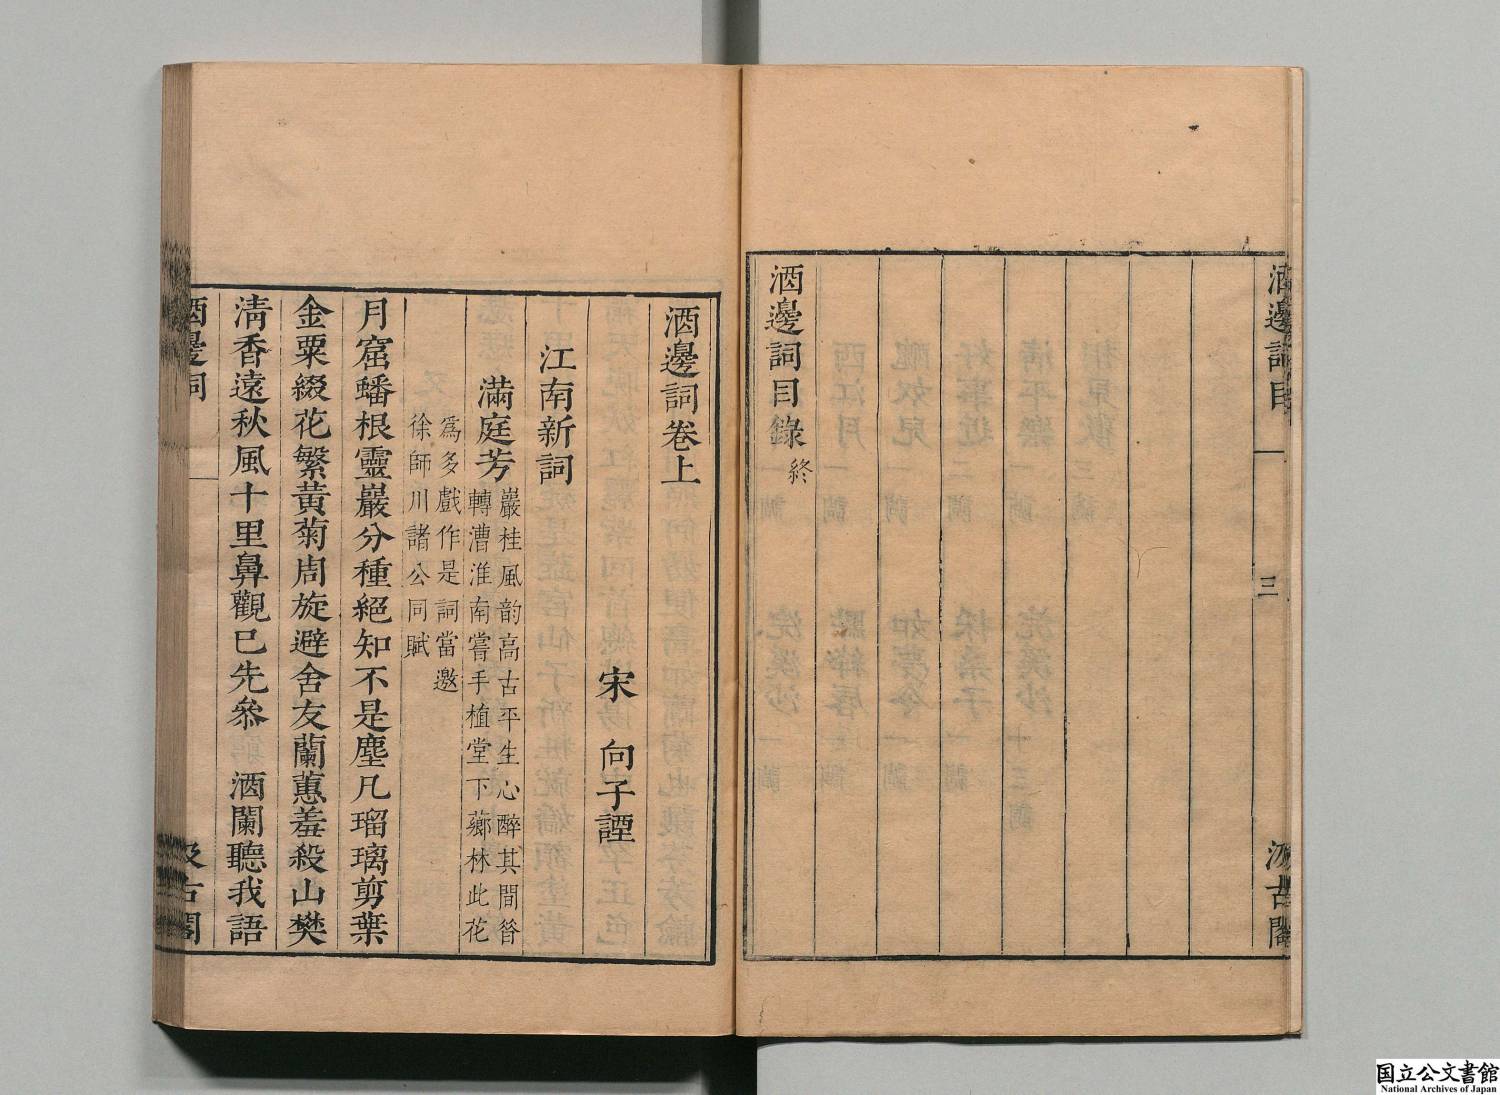 酒邊詞目
三
汲古閣
酒邊詞目錄終
酒邊詞卷上
宋 向子諲
江南新詞
滿庭芳
巖桂風韵高古平生心醉其間昝
轉漕淮南嘗手植堂下薌林此花
爲多戲作是詞當邀
徐師川諸公同賦
月窟蟠根靈巖分種絕知不是塵凡瑠璃剪葉
金粟綴花繁黃菊周旋避舍友蘭蕙羞殺山樊
淸香遠秋風十里鼻觀已先叅 酒闌聽我語
酒邊詞
一
汲古閣
国立公文書館
National Archives of Japan